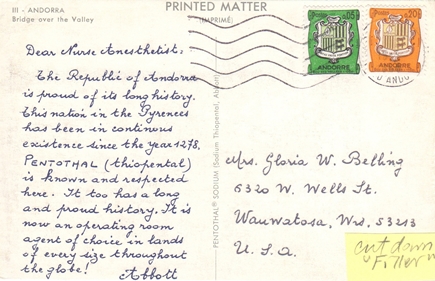 III - ANDORRA
Bridge over the Valley
PRINTED MATTER
(IMPRIMÉ)
Dear Nurse Anesthetist:
The Republic of Andorra
is proud of its long history.
This nation in the Pyrenees
has been in continous
existence since the year 1278.
PENTOTHAL (thiopental)
is known and respected
here. It too has a long
and proud history. It is
now an operating room
agent of choice in lands
of every size throughout
the globe!
Abbott
PENTOTHAL® SODIUM (Sodium Thiopental, Abbott)
ANDORRE
ANDORRE
Mrs. Gloria W. Belling
6320 W. Wells St.
Wauwatosa, Wis. 53213
U.S.A.
cut down
"Filler"